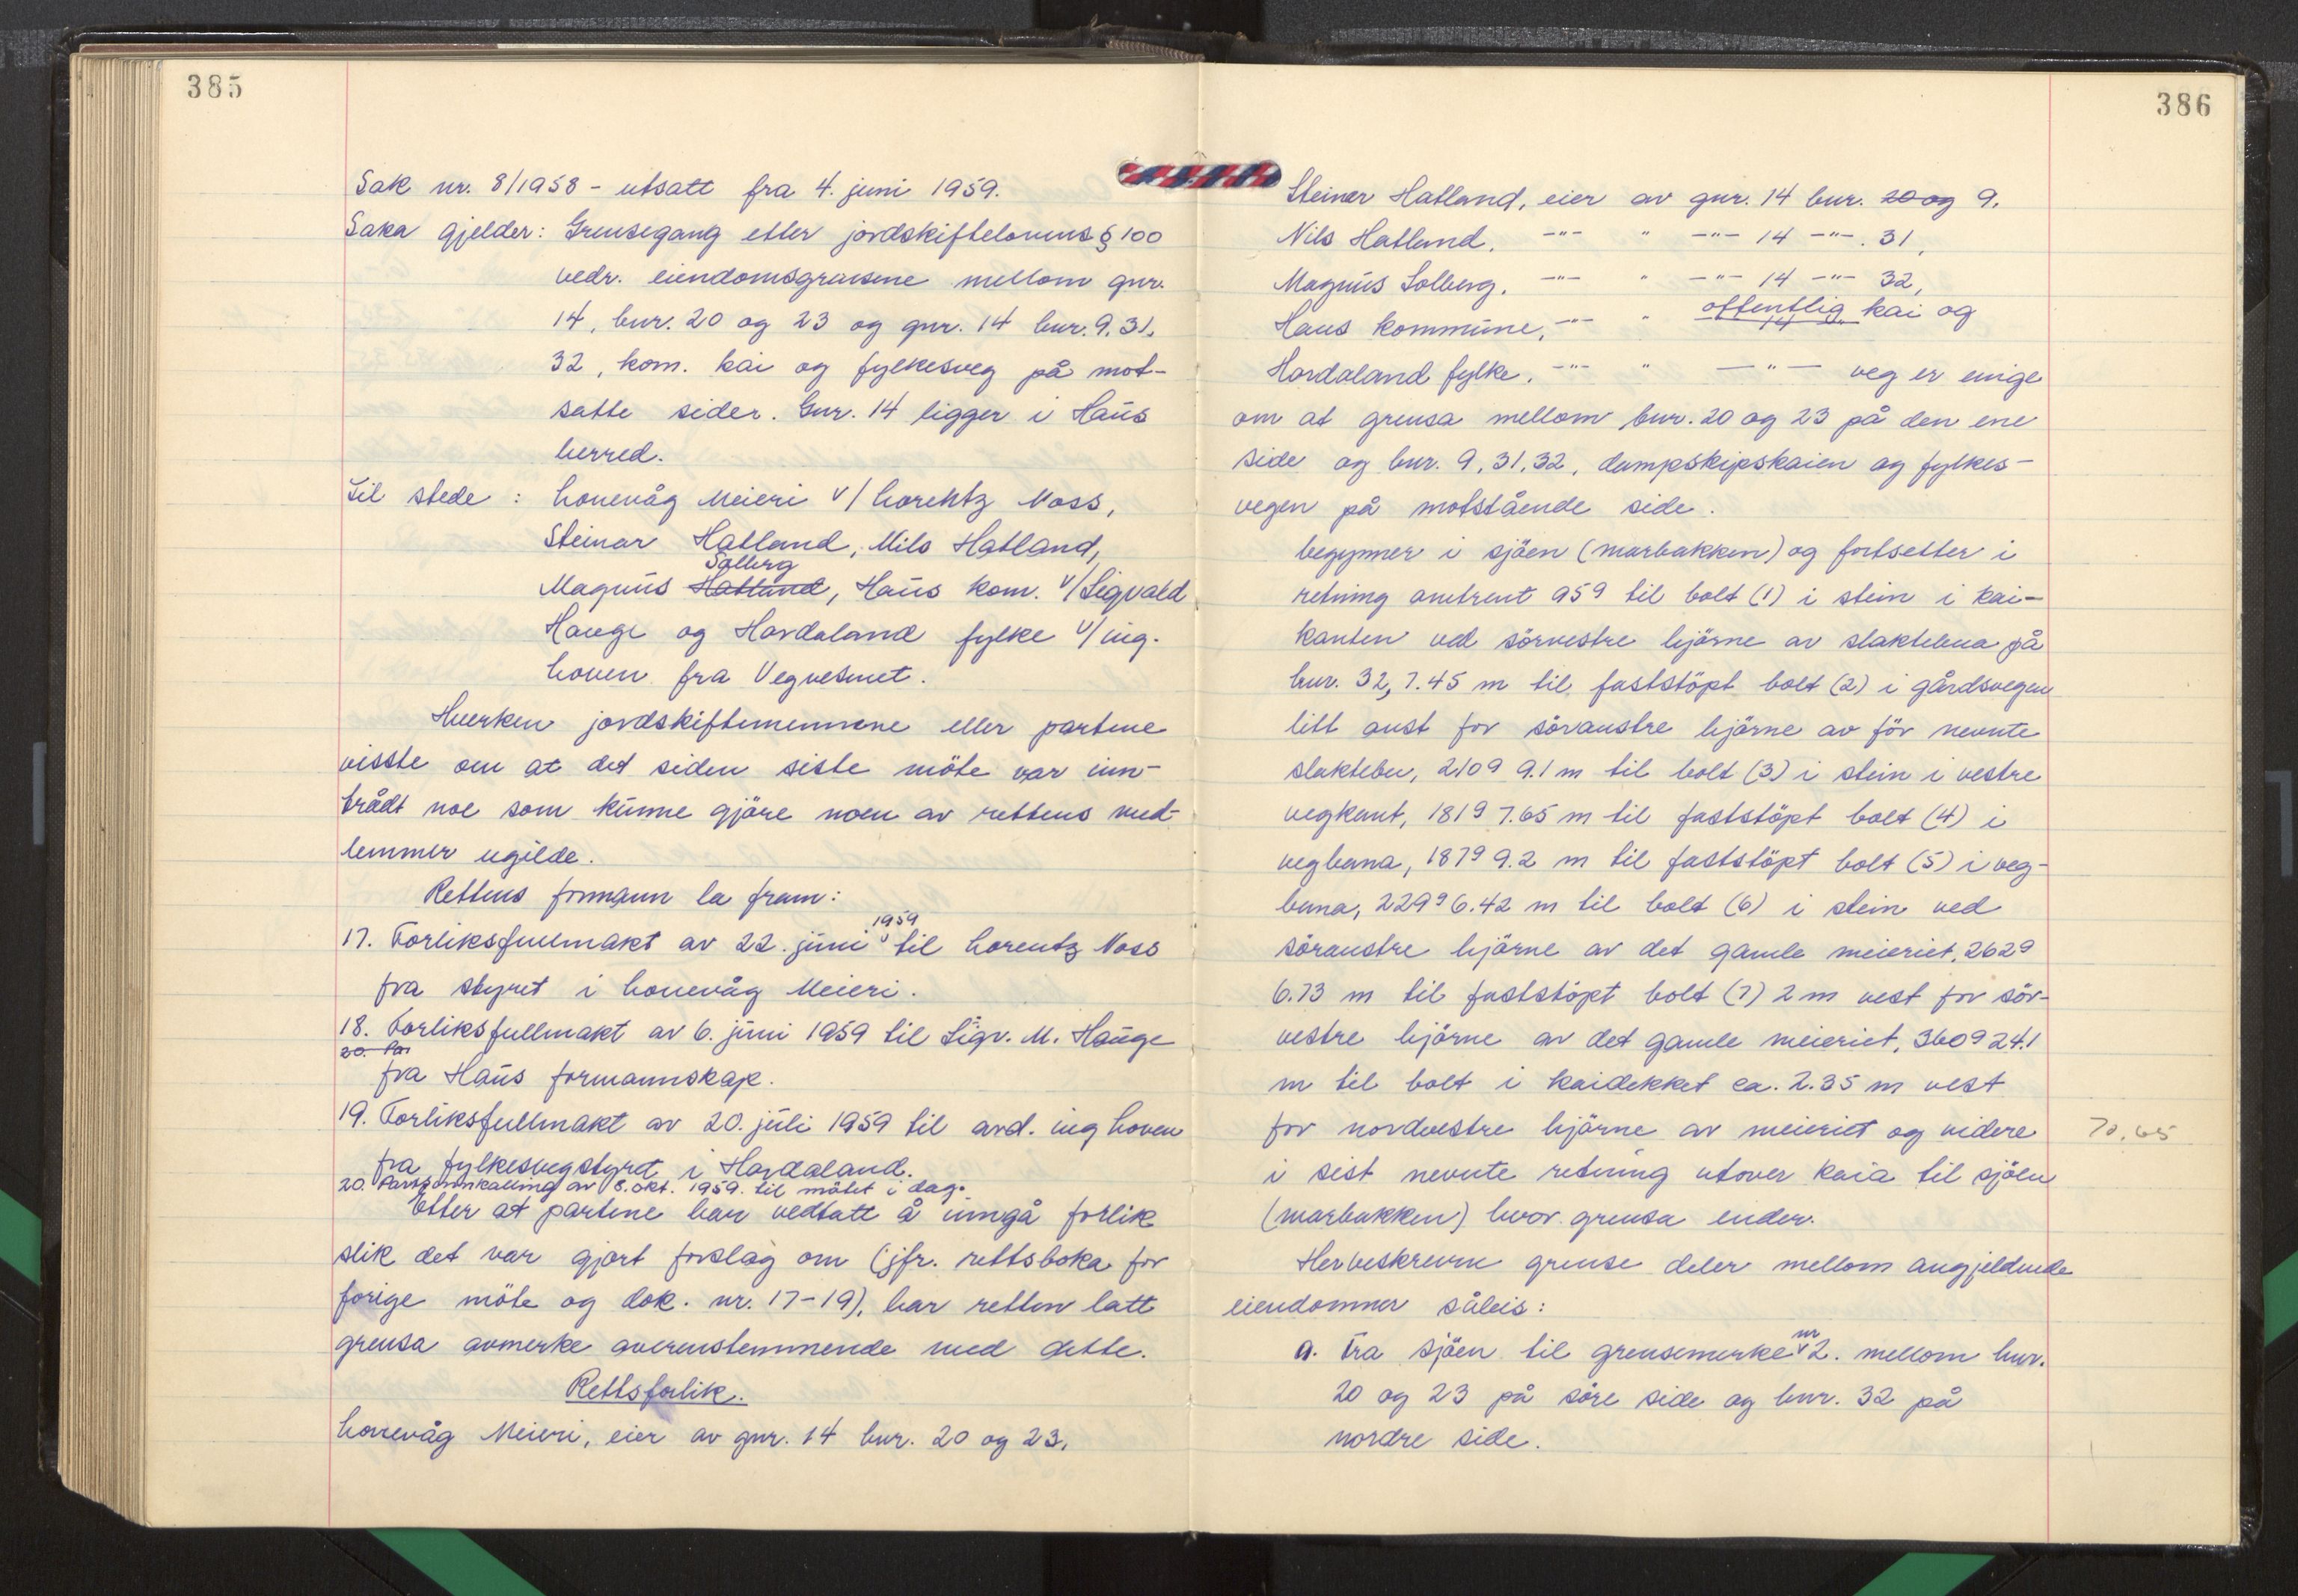 385
Sak nr. 8/1958 - utsatt fra 4. juni 1959.
Saka gjelder: Grensegang etter jordskiftelovens § 100
vedr. eiendomsgrensene mellom gnr.
14, bnr. 20 og 23 og gnr. 14 bnr. 9, 31,
32, kom. kai og fylkesveg på mot-
satte sider. Gnr. 14 ligger i Haus
herred.
Til stede : Lonevåg Meieri v/ Lorentz Moss,
Steinar Hatland, Nils Hatland,
Solberg
Magnus Hatland, Haus kom. v/ Sigvald
Hauge og Hordaland fylke v/ ing.
Loven fra Vegvesenet.
Hverken jordskiftemennene eller partene
visste om at det siden siste møte var inn-
trådt noe som kunne gjøre noen av rettens med-
lemmer ugilde.
Rettens formann la fram:
1959
17. Forliksfullmakt av 22. juni til Lorentz Moss
fra styret i Lonevåg Meieri.
18. Forliksfullmakt av 6. juni 1959 til Sigv. M. Hauge
20. Par
fra Haus formannskap.
19. Forliksfullmakt av 20. juli 1959 til avd. ing Loven
fra fylkesvegstyret i Hordaland.
20. Partsinnkalling av 8. okt. 1959. til møtet i dag.
Etter at partene har vedtatt å inngå forlik
slik det var gjort forslag om (jfr. rettsboka for
forige møte og dok. nr. 17-19), har retten latt
grensa avmerke overenstemmende med dette.
Rettsforlik.
Lonevåg Meieri, eier av gnr. 14 bnr. 20 og 23,
386
Steinar Hatland, eier av gnr. 14 bnr. 20 og 9.
Nils Hatland, -"- " -"- 14 -"-. 31,
Magnus Solberg. -"- " -"- 14 -"- 32,
Haus kommune, -"- " offentlig kai og
14 "
Hordaland fylke. -"- " -"- veg er enige
om at grensa mellom bnr. 20 og 23 på den ene
side og bnr. 9, 31, 32, dampskipskaien og fylkes-
vegen på motstående side.
begynner i sjøen (marbakken) og fortsetter i
retning omtrent 95g til bolt (1) i stein i kai-
kanten ved sørvestre hjørne av slaktebua på
bnr. 32, 7.45 m til faststøpt bolt (2) i gårdsvegen
litt aust for søraustre hjørne av før nevnte
slaktebu, 210g 9.1 m til bolt (3) i stein i vestre
vegkant, 181g 7.65 m til faststøpt bolt (4) i
vegbana, 187g 9.2 m til faststøpt bolt (5) i veg-
bana, 229g 6.42 m til bolt (6) i stein ved
søraustre hjørne av det gamle meieriet, 262g
6.73 m til faststøpt bolt (7) 2 m vest for sør-
vestre hjørne av det gamle meieriet, 360g 24.1
m til bolt i kaidekket ca. 2.35 m vest
for nordvestre hjørne av meieriet og videre
70.65
i sist nevnte retning utover kaia til sjøen
(marbakken) hvor grensa ender.
Herbeskrevne grense deler mellom angjeldende
eiendommer såleis:
nr
a. Fra sjøen til grensemerke 2. mellom bnr.
20 og 23 på søre side og bnr. 32 på
nordre side.